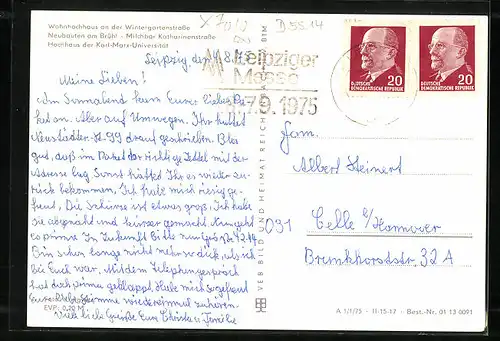 Wohnhochhaus an der Wintergartenstraße
Neubauten am Brühl - Milchbar Katharinenstraße
Hochhaus der Karl-Marx-Universität
X7010
D5514
Leipzig, den
Meine Lieben!
Am Sonnabend kam Euer liebes Pa-
ket an. Aber auf Umwegen. Ihr hattet
Neustädter drauf geschrieben.
gut, daß im Paket der richtige Zettel mit der
Adresse lag. Sonst hättet Ihr es wieder zu-
rück bekommen. Ich habe mich riesig ge-
freut. Die Schürze ist etwas groß. Ich habe
sie abgenäht und kürzer gemacht. Nun geht
es prima. In Zukunft bitte nur Größe
Bin schon lange nicht mehr so dick, als ich
bei Euch war. Mit dem Telephongespräch
hat doch prima geklappt. Habe mich so gefreut
Eure Stimme wiedereinmal zu hören.
Viele liebe Grüße Eure Christa u. Familie
EVP: 0,20 M
Leipziger
Messe
7.9.1975
VEB BILD UND HEIMAT REICHENBACH
DEUTSCHE
DEMOKRATISCHE REPUBLIK
20
DEUTSCHE
DEMOKRATISCHE REPUBLIK
20
Fam.
Albert Steinert
Celle b/Hannover
Bremkhorststr. 32A
A 1/1/75 · II-15-17 · Best.-Nr. 01 13 0091